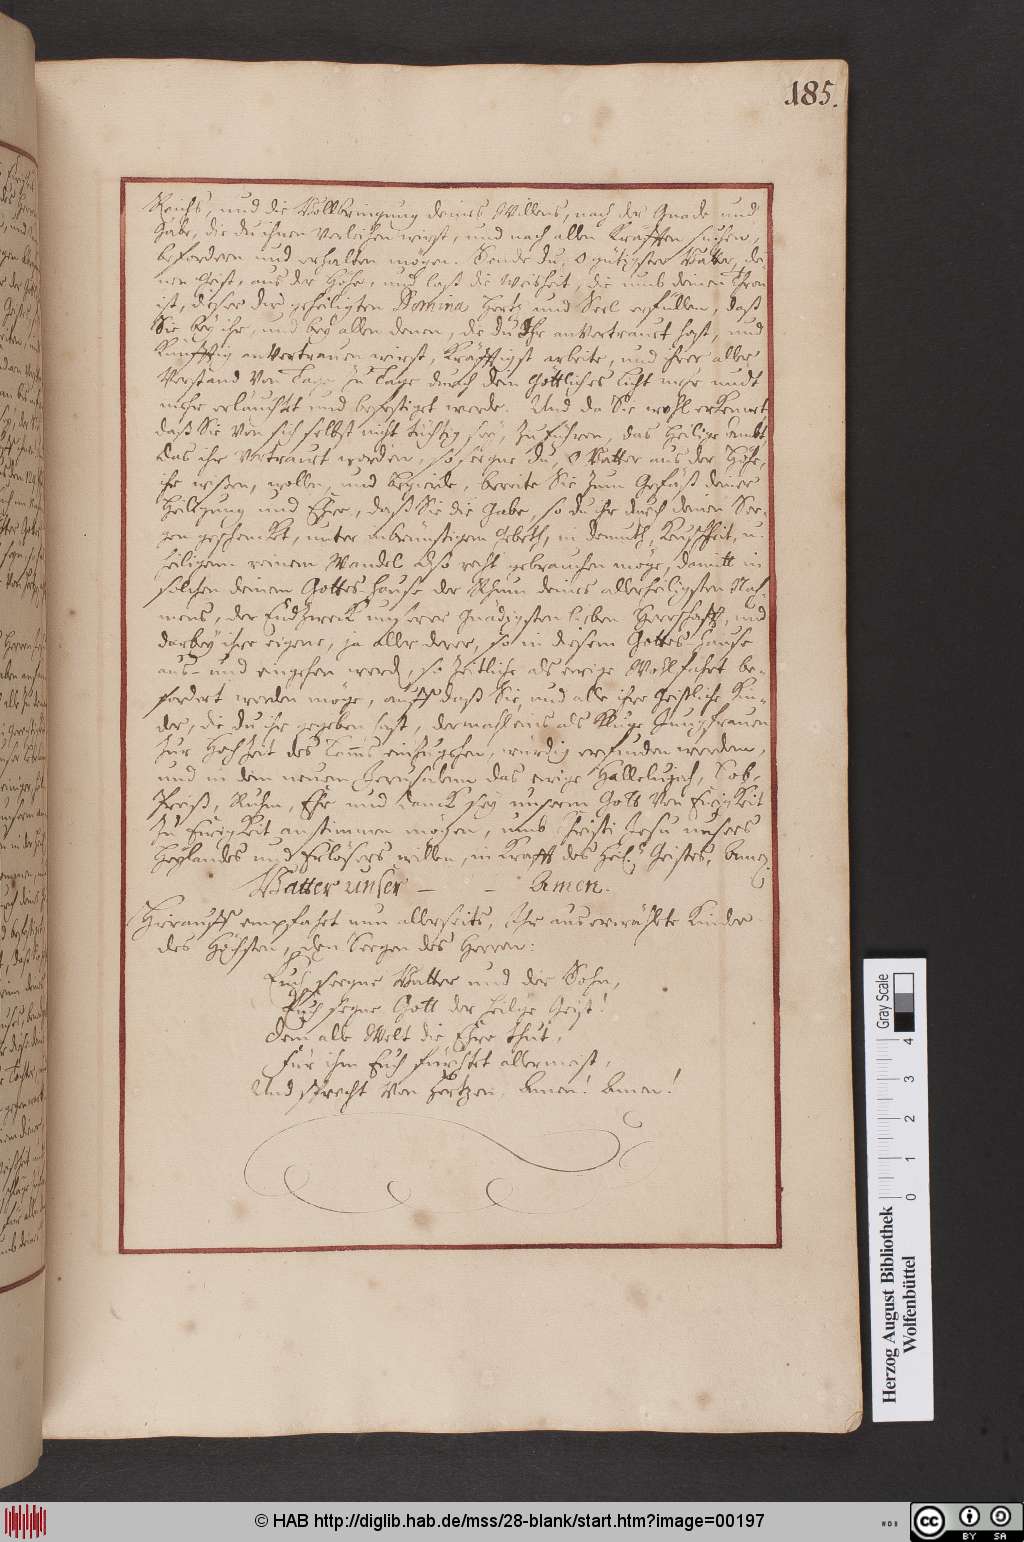 185.
Reichs, und die Vollbringung deines Willens, nach der Gnade und
Gabe, die du ihnen verleihen wirst, und nach allen Kräfften suchen,
befordern und erhalten mögen. Sende du, o gütigster Vatter, dei-
nen Geist, aus der Höhe, und laß die Weisheit, die umb deinen Thron
ist, dieser der geheiligten Domina Hertz und Seel erfüllen, daß
Sie bey ihr, und bey allen denen, die du Ihr anvertraut hast, und
Künfftig anvertrauen wirst, kräfftigst arbeite, und ihrer aller
Verstand von Tage zu Tage durch dein Göttliches licht mehr undt
mehr erläuchtet und befestiget werde. Und da Sie wohl erkennet,
daß Sie von sich selbst nicht tüchtig sey, zu führen, das heilige Ambt
das ihr vertraut worden, so seegne du, o Vatter aus der Höhe,
ihr wißen, wollen, und begierde, bereite Sie zum Gefäß deiner
Heiligung und Ehre, daß Sie die Gabe, so du ihr durch deinen See-
gen geschenckt, unter inbrünstigem Gebeth, in demuth, Keuschheit, u.
heiligem reinem Wandel also recht gebrauchen möge, damitt in
solchen deinem Gottes-Hause der Ruhm deines allerheiligsten Nah-
mens, der Endzweck unserer Gnädigsten lieben Herrschafft, und
darbey ihre eigene, ja aller derer, so in diesem Gottes Hause
aus- und eingehen werden, so zeitliche als ewige Wohlfahrt be-
fordert werden möge, auff daß Sie, und alle ihre Geistliche Kin-
der, die du ihr gegeben hast, dermahleins als Kluge Jungfrauen
zur Hochzeit des Lamms einzugehen, würdig erfunden werden,
und in dem neuen Jerusalem das ewige Hallelujah, Lob,
Preiß, Ruhm, Ehr und Danck sey unserm Gott von Ewigkeit
zu Ewigkeit anstimmen mögen, umb Christi Jesu unsers
Heylandes und Erlösers willen, in Krafft des Heil. Geistes, Amen.
Vatter unser – – Amen.
Hierauff empfahet nun allerseits, Ihr auserwählte Kinder
des Höchsten, den Seegen des Herren:
Euch seegne Vatter und der Sohn,
Euch segne Gott der heilige Geist!
Dem alle Welt die Ehre thut,
für ihm Euch fürchtet allermeist,
Und sprecht von Hertzen, Amen! Amen!
Herzog August Bibliothek
Wolfenbüttel
0 1 2 3 4
Gray Scale
© HAB http://diglib.hab.de/mss/28-blank/start.htm?image=00197
WDB
cc BY SA